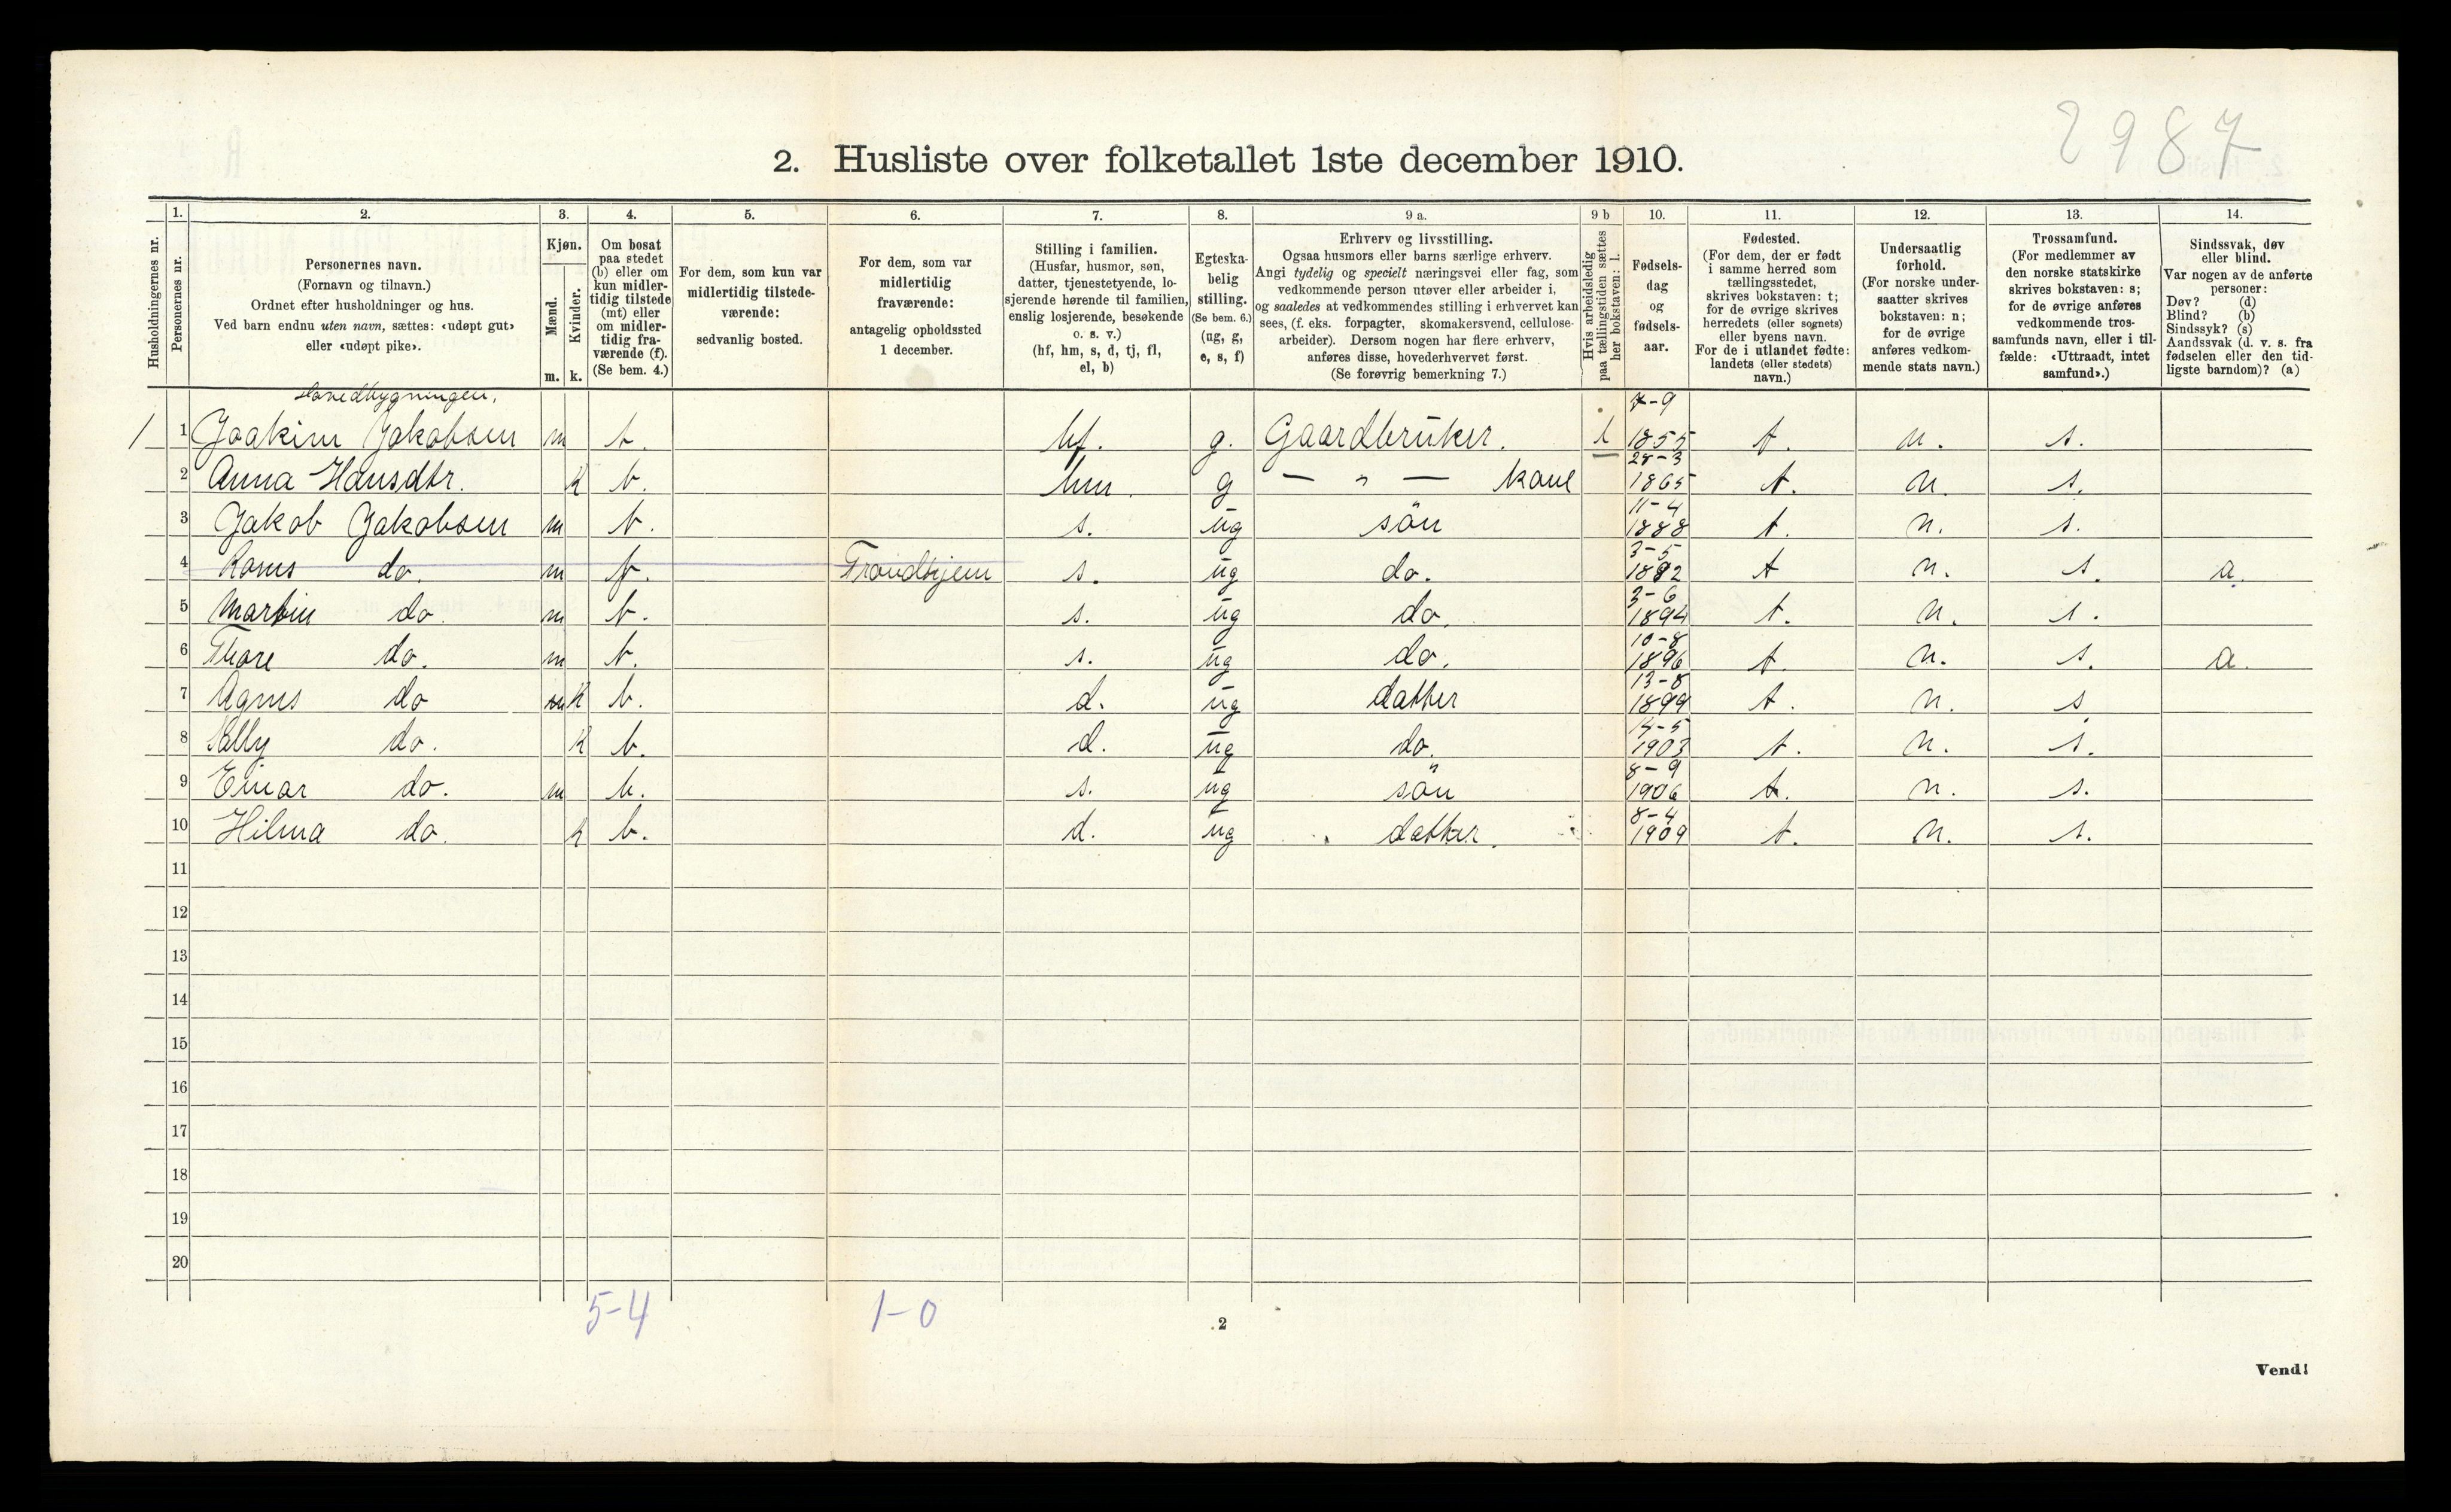 2987
2. Husliste over folketallet 1ste december 1910.
Husholdningernes nr.
1. Personernes nr.
2. Personernes navn. (Fornavn og tilnavn.) Ordnet efter husholdninger og hus. Ved barn endnu uten navn, sættes: «udøpt gut» eller «udøpt pike».
3. Kjøn. Mænd. m. Kvinder. k.
4. Om bosat paa stedet (b) eller om kun midlertidig tilstede (mt) eller om midlertidig fraværende (f). (Se bem. 4.)
5. For dem, som kun var midlertidig tilstedeværende: sedvanlig bosted.
6. For dem, som var midlertidig fraværende: antagelig opholdssted 1 december.
7. Stilling i familien. (Husfar, husmor, søn, datter, tjenestetyende, losjerende hørende til familien, enslig losjerende, besøkende o. s. v.) (hf, hm, s, d, tj, fl, el, b)
8. Egteskabelig stilling. (Se bem. 6.) (ug, g, e, s, f)
9 a. Erhverv og livsstilling. Ogsaa husmors eller barns særlige erhverv. Angi tydelig og specielt næringsvei eller fag, som vedkommende person utøver eller arbeider i, og saaledes at vedkommendes stilling i erhvervet kan sees, (f. eks. forpagter, skomakersvend, cellulosearbeider). Dersom nogen har flere erhverv, anføres disse, hovederhvervet først. (Se forøvrig bemerkning 7.)
9 b Hvis arbeidsledig paa tællingstiden sættes her bokstaven: l.
10. Fødselsdag og fødselsaar.
11. Fødested. (For dem, der er født i samme herred som tællingsstedet, skrives bokstaven: t; for de øvrige skrives herredets (eller sognets) eller byens navn. For de i utlandet fødte: landets (eller stedets) navn.)
12. Undersaatlig forhold. (For norske undersaatter skrives bokstaven: n; for de øvrige anføres vedkommende stats navn.)
13. Trossamfund. (For medlemmer av den norske statskirke skrives bokstaven: s; for de øvrige anføres vedkommende trossamfunds navn, eller i tilfælde: «Uttraadt, intet samfund».)
14. Sindssvak, døv eller blind. Var nogen av de anførte personer: Døv? (d) Blind? (b) Sindssyk? (s) Aandssvak (d. v. s. fra fødselen eller den tidligste barndom)? (a)
Hovedbygningen,
1 1 Joakim Jakobsen m b. hf. g. Gaardbruker. l 7-9 1855 t. n. s.
2 Anna Hansdtr. k b. hm. g — " — kone 28-3 1865 t. n. s.
3 Jakob Jakobsen m b. s. ug sön 11-4 1888 t. n. s.
4 do. m f. Trondhjem s. ug do. 3-5 1892 t n. s. a.
5 Martin do. m b. s. ug do. 3-6 1894 t. n. s.
6 Thore do. m b. s. ug do. 10-8 1896 t. n. s. a.
7 Agnes do k b. d. ug datter 13-8 1899 t. n. s
8 do. k b. d. ug do. 14-5 1903 t. n. s.
9 Einar do. m b. s. ug sön 8-9 1906 t. n. s.
10 Hilma do. k b. d. ug datter. 8-4 1909 t. n. s.
11
12
13
14
15
16
17
18
19
20
5-4 1-0
2
Vend!